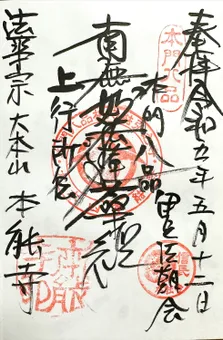 奉拝 令和五年五月十二日
本門八品
本門八品
南無妙法蓮華経
上行所伝
法華宗 大本山 本能寺